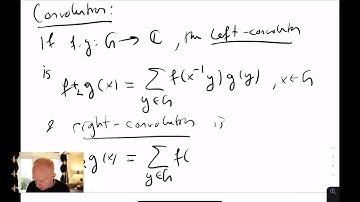 Convolution:
If f, g: G → ℂ, the left-convolution
is f *_L g(x) = ∑_{y∈G} f(x⁻¹y) g(y), x∈G
& right-convolution is
g(x) = ∑_{y∈G} f(